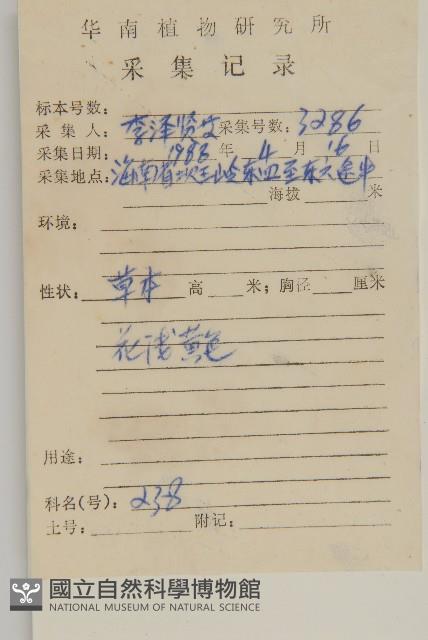 华南植物研究所
采集记录
标本号数:
采集人: 李泽贤 采集号数: 3286
采集日期: 1988 年 4 月 16 日
采集地点: 海南省 王岭东四至东六途中
海拔 米
环境:
性状: 草本 高 米; 胸径 厘米
花浅黄色
用途:
科名(号): 238
土号: 附记:
國立自然科學博物館
NATIONAL MUSEUM OF NATURAL SCIENCE